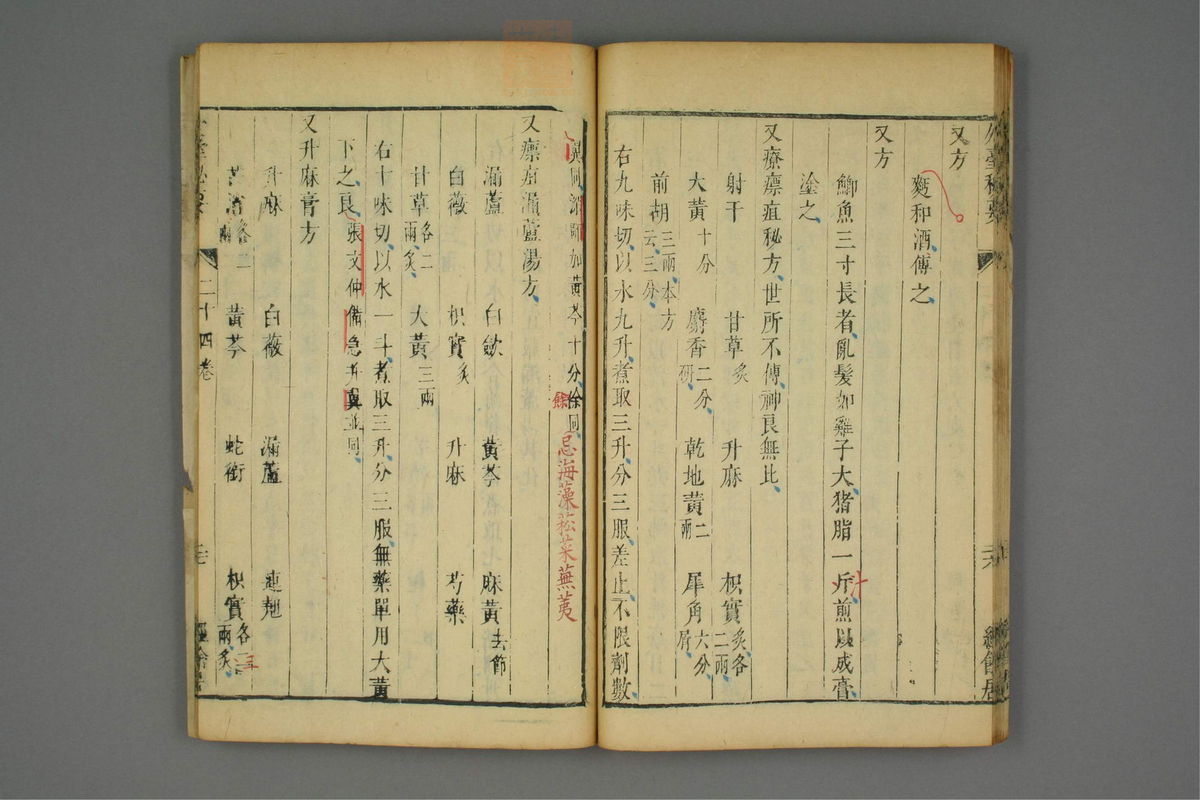 外臺秘要
又方
麪和酒傅之
又方
鯽魚三寸長者亂髮如雞子大猪脂一斤煎以成膏
升
塗之
又療瘭疽秘方世所不傳神良無比
射干 甘草炙 升麻 枳實炙各二兩
大黃十分 麝香二分研 乾地黃二兩 犀角六分屑
前胡三兩本方云三分
右九味切以水九升煮取三升分三服差止不限劑數
黃芩十分徐同忌海藻菘菜蕪荑
餘
又瘭疽漏蘆湯方
漏蘆 白斂 黃芩 麻黃去節
白薇 枳實炙 升麻 芍藥
甘草各二兩炙 大黃三兩
右十味切以水一斗煮取三升分三服無藥單用大黃
下之良張文仲備急並同
又升麻膏方
升麻 白薇 漏蘆 連翹
黃芩 蛇銜 枳實各三兩炙
二十四卷